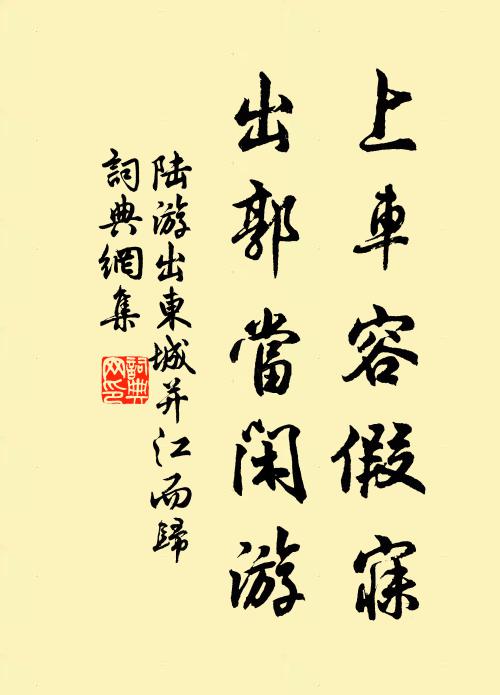 上車容假寐
出郭當閑游
陆游出東城并江而歸
詞典網集
詞典網印